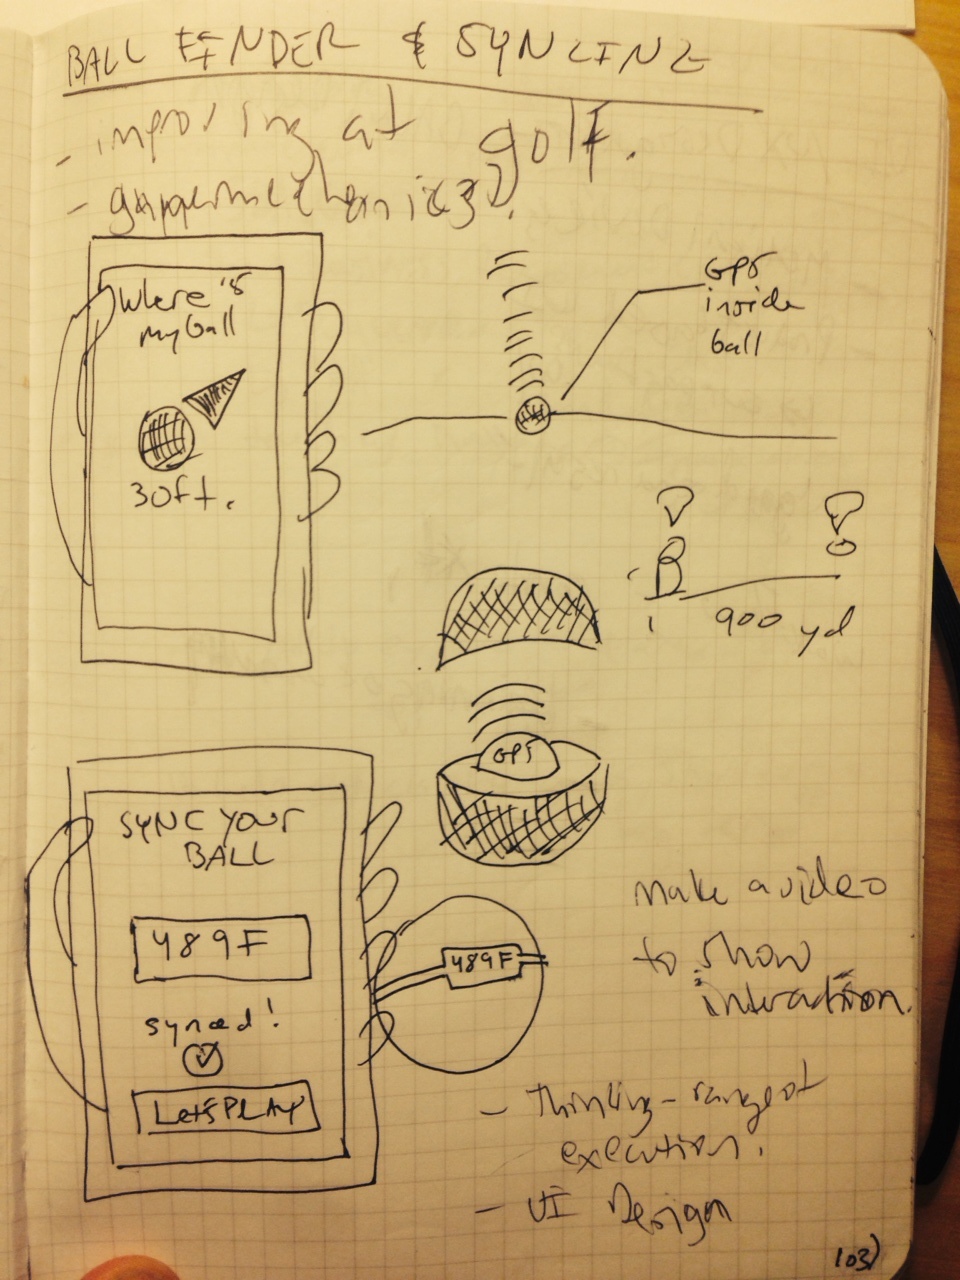 BALL FINDER & SYNCING
- improving at golf.
- game mechanics.
Where's
my ball
30ft.
GPS
inside
ball
1
900 yd
GPS
SYNC YOUR
BALL
489F
synced!
LET'S PLAY
489F
Make a video
to show
interaction.
- Thinking - range of
execution.
- UI Design
103)